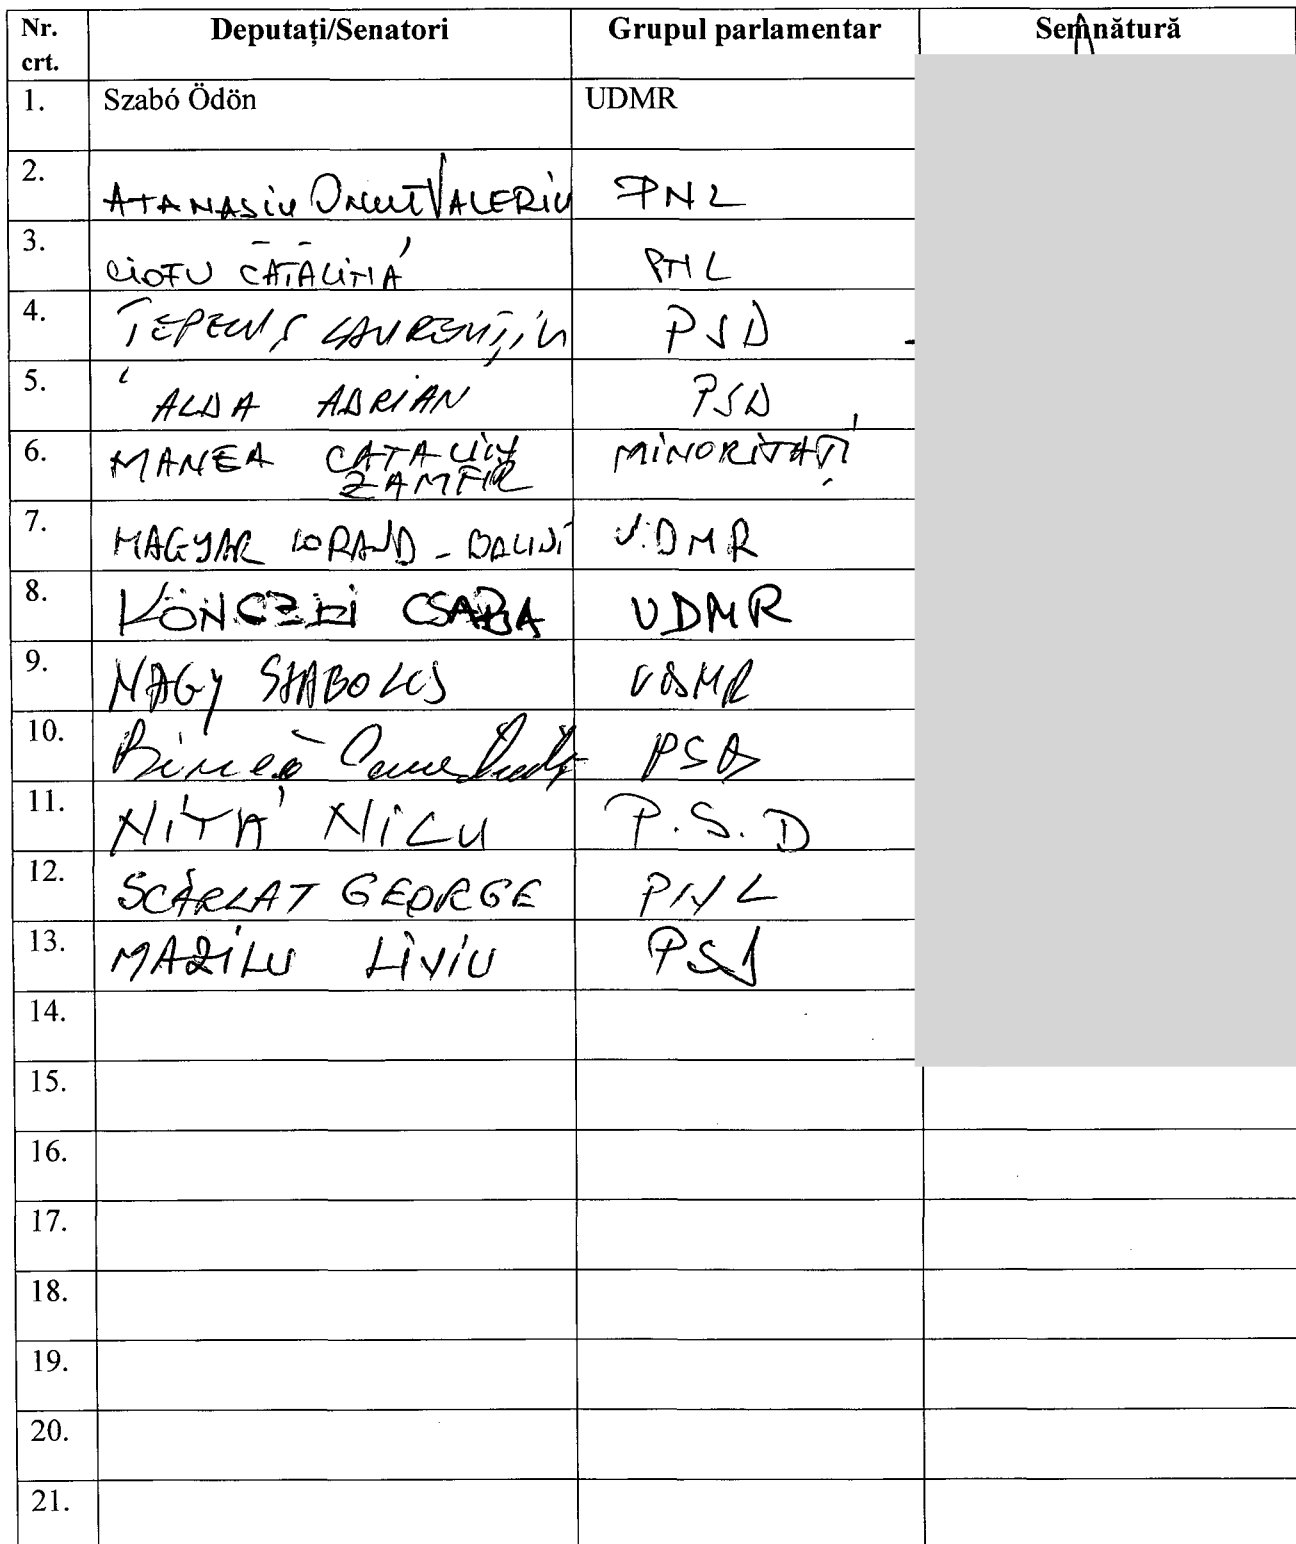 Nr. crt. Deputați/Senatori Grupul parlamentar Semnătură
1. Szabó Ödön UDMR
2. ATANASIU IONUT VALERIU PNL
3. CIOFU CĂTĂLINA PNL
4. LAURENȚIU PSD
5. ALDA ADRIAN PSD
6. MANEA CATALIN MINORITĂȚI
ZAMFIR
7. MAGYAR LORAND - BALINT U.DMR
8. KÖNCZEI CSABA UDMR
9. NAGY SZABOLCS UDMR
10. PSD
11. NIȚĂ NICU P.S.D
12. SCARLAT GEORGE PNL
13. MAZILU LIVIU PSD
14.
15.
16.
17.
18.
19.
20.
21.